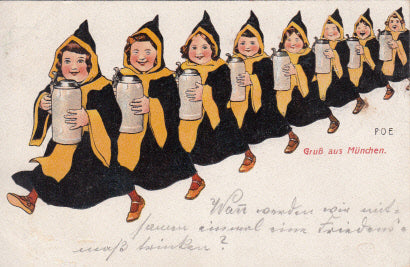 POE
Gruß aus München.
Wann werden wir mit-
samen einmal eine Friedens-
maß trinken?